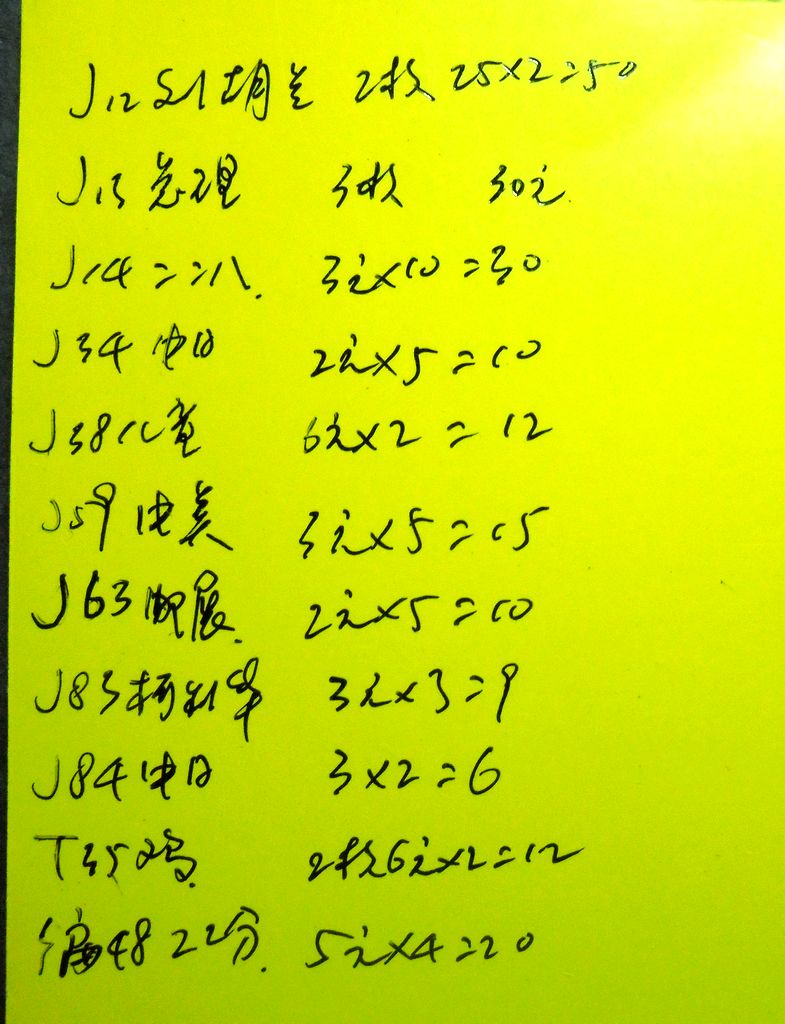 J12刘胡兰 2枚 25×2=50
J13总理 3枚 30元
J14二二八. 3元×10=30
J34中日 2元×5=10
J38儿童 6元×2=12
J59中美 3元×5=15
J63邮展. 2元×5=10
J83柯利华 3元×3=9
J84中日 3×2=6
T35鸡. 2枚6元×2=12
编48 22分. 5元×4=20